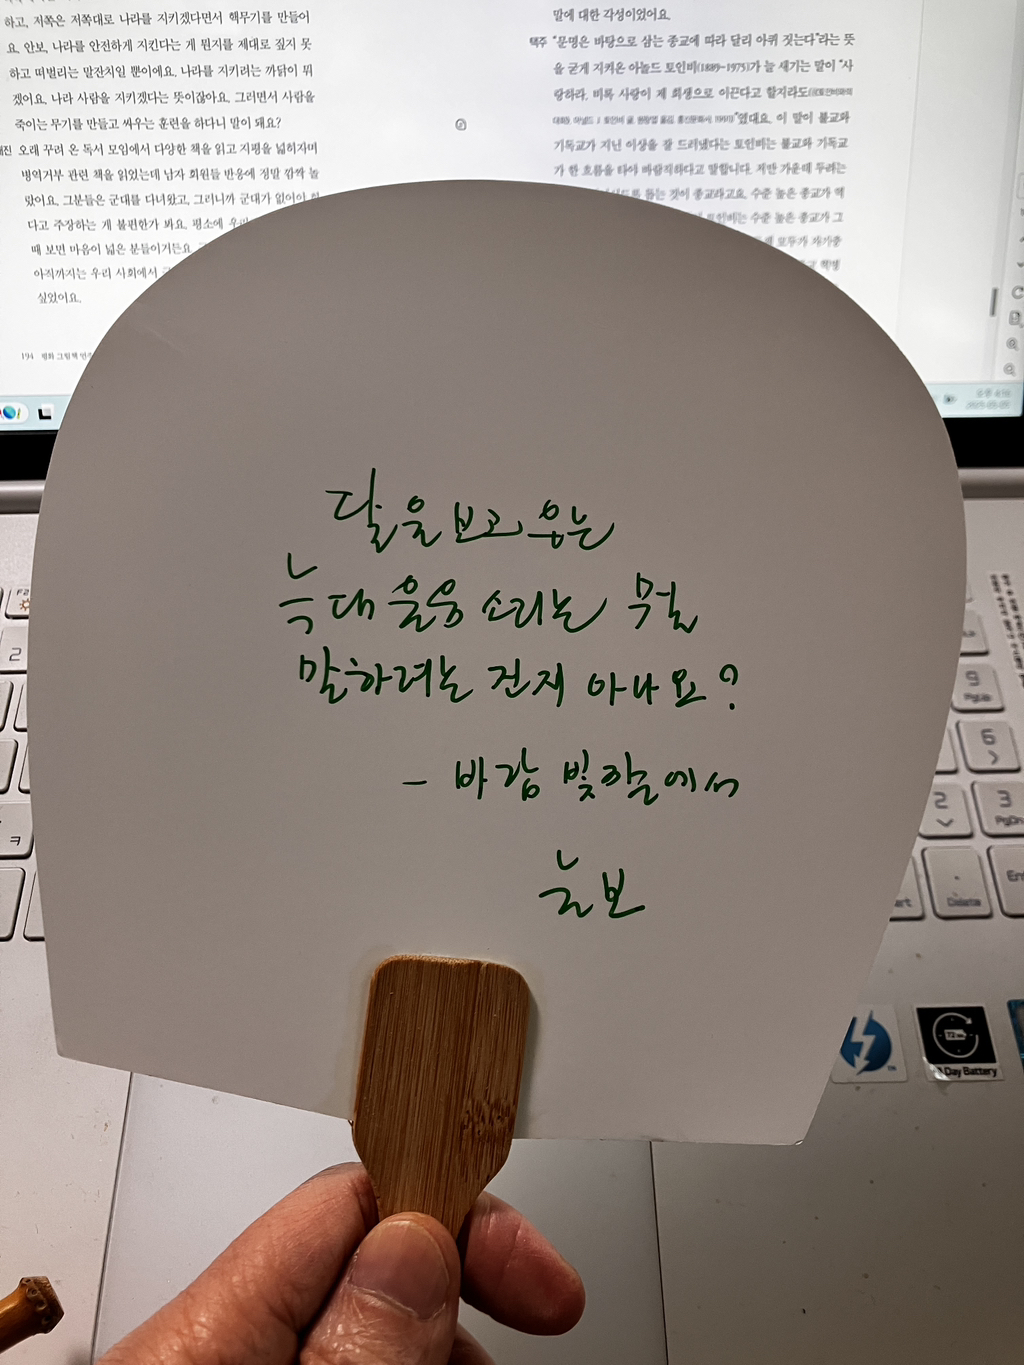 하고, 저쪽은 저쪽대로 나라를 지키겠다면서 핵무기를 만들어
요. 안보, 나라를 안전하게 지킨다는 게 뭔지를 제대로 짚지 못
하고 떠벌리는 말잔치일 뿐이에요. 나라를 지키려는 까닭이 뭐
겠어요. 나라 사람을 지키겠다는 뜻이잖아요. 그러면서 사람을
죽이는 무기를 만들고 싸우는 훈련을 하다니 말이 돼요?
오래 꾸려 온 독서 모임에서 다양한 책을 읽고 지평을 넓히자며
병역거부 관련 책을 읽었는데 남자 회원들 반응에 정말 깜짝 놀
랐어요. 그분들은 군대를 다녀왔고, 그러니까 군대가 없어야
다고 주장하는 게 불편한가 봐요. 평소에
때 보면 마음이 넓은 분들이거든요.
아직까지는 우리 사회에서
싶었어요.
194 평화 그림책
말에 대한 각성이었어요.
택주 "문명은 바탕으로 삼는 종교에 따라 달리 아퀴 짓는다"라는 뜻
을 굳게 지켜온 아놀드 토인비(1889-1975)가 늘 새기는 말이 "사
랑하라. 비록 사랑이 제 희생으로 이끈다고 할지라도
"였대요. 이 말이 불교와
기독교가 지닌 이상을 잘 드러냈다는 토인비는 불교와 기독교
가 한 흐름을 타야 바람직하다고 말합니다.
돕는 것이 종교라고요. 수준 높은 종교가
토인비는 수준 높은 종교가 그
모두가
달을 보고 우는
늑대 울음 소리는 뭘
말하려는 건지 아나요?
- 바람 빛깔에서
늘보
F2
2
ㅋ
9
PgUp
6
2
3
PgDn
Delete
Day Battery